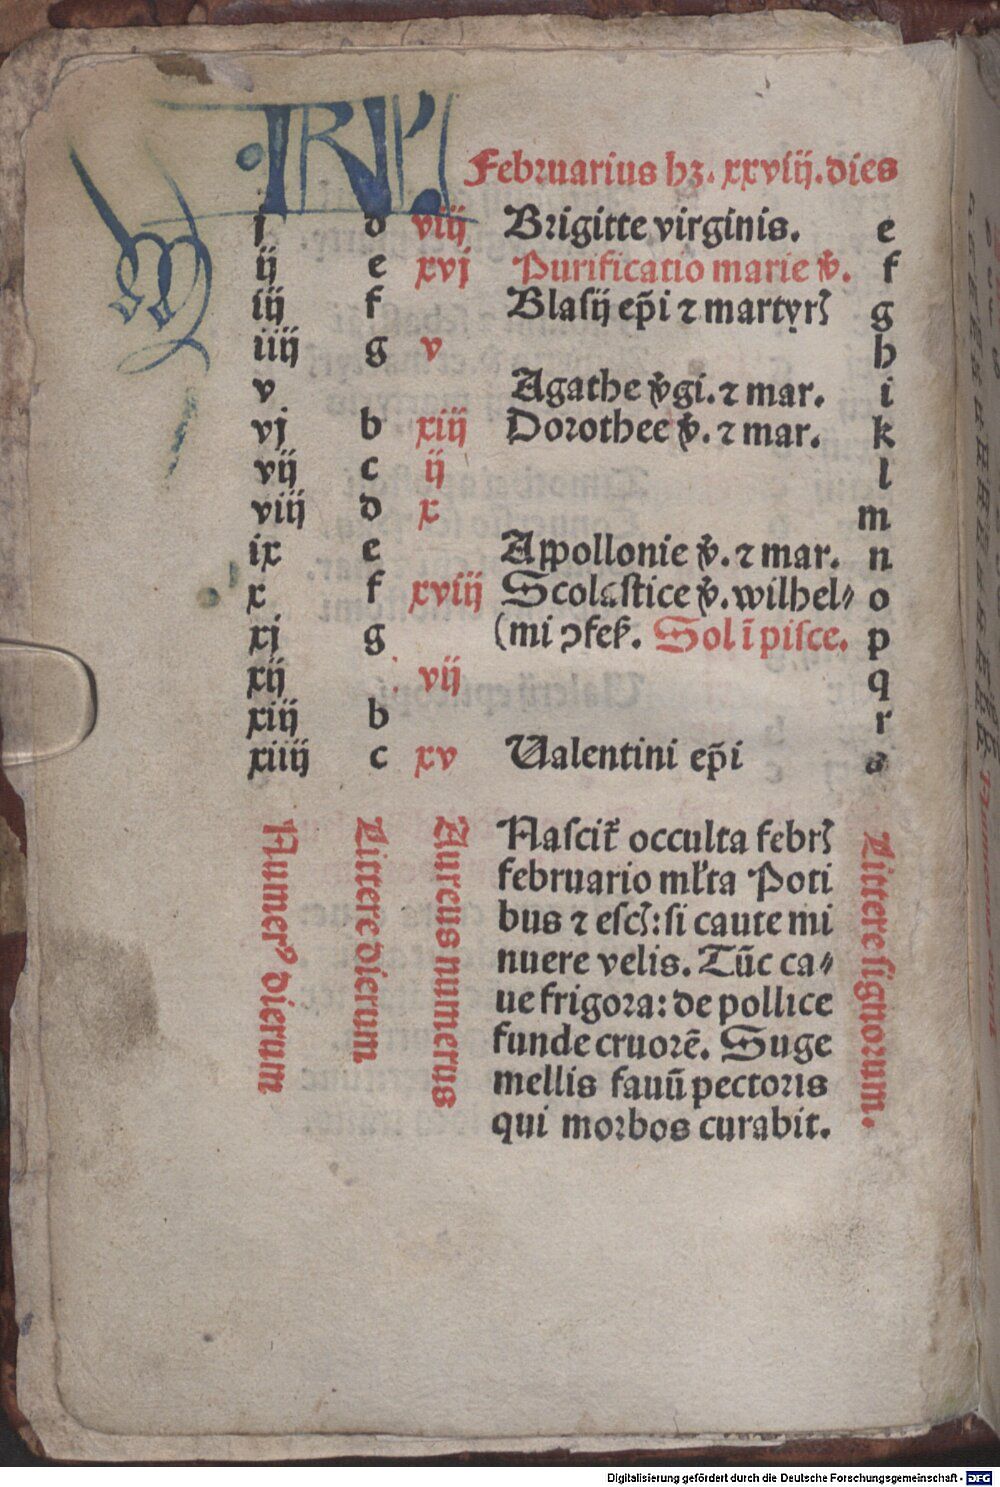 Februarius hꝫ. xxviij. dies
j d viij Brigitte virginis. e
ij e xvj Purificatio marie v̄. f
iij f Blasij ep̄i ⁊ martyrꝭ g
iiij g v h
v Agathe v̄gi. ⁊ mar. i
vj b xiij Dorothee v̄. ⁊ mar. k
vij c ij l
viij d x m
ix e Appollonie v̄. ⁊ mar. n
x f xviij Scolastice v̄. wilhel⸗ o
xj g (mi ↄfeſſ. Sol ī pisce. p
xij vij q
xiij b r
xiiij c xv Ualentini ep̄i a
Numerꝰ dierum
Littere dierum
Aureus numerus
Nascit᷑ occulta febrꝭ
februario ml̓ta Poti
bus ⁊ escꝭ: si caute mi
nuere velis. Tūc ca⸗
ue frigora: de pollice
funde cruorē. Suge
mellis fauū pectoris
qui morbos curabit.
Littere signorum.
Digitalisierung gefördert durch die Deutsche Forschungsgemeinschaft - DFG